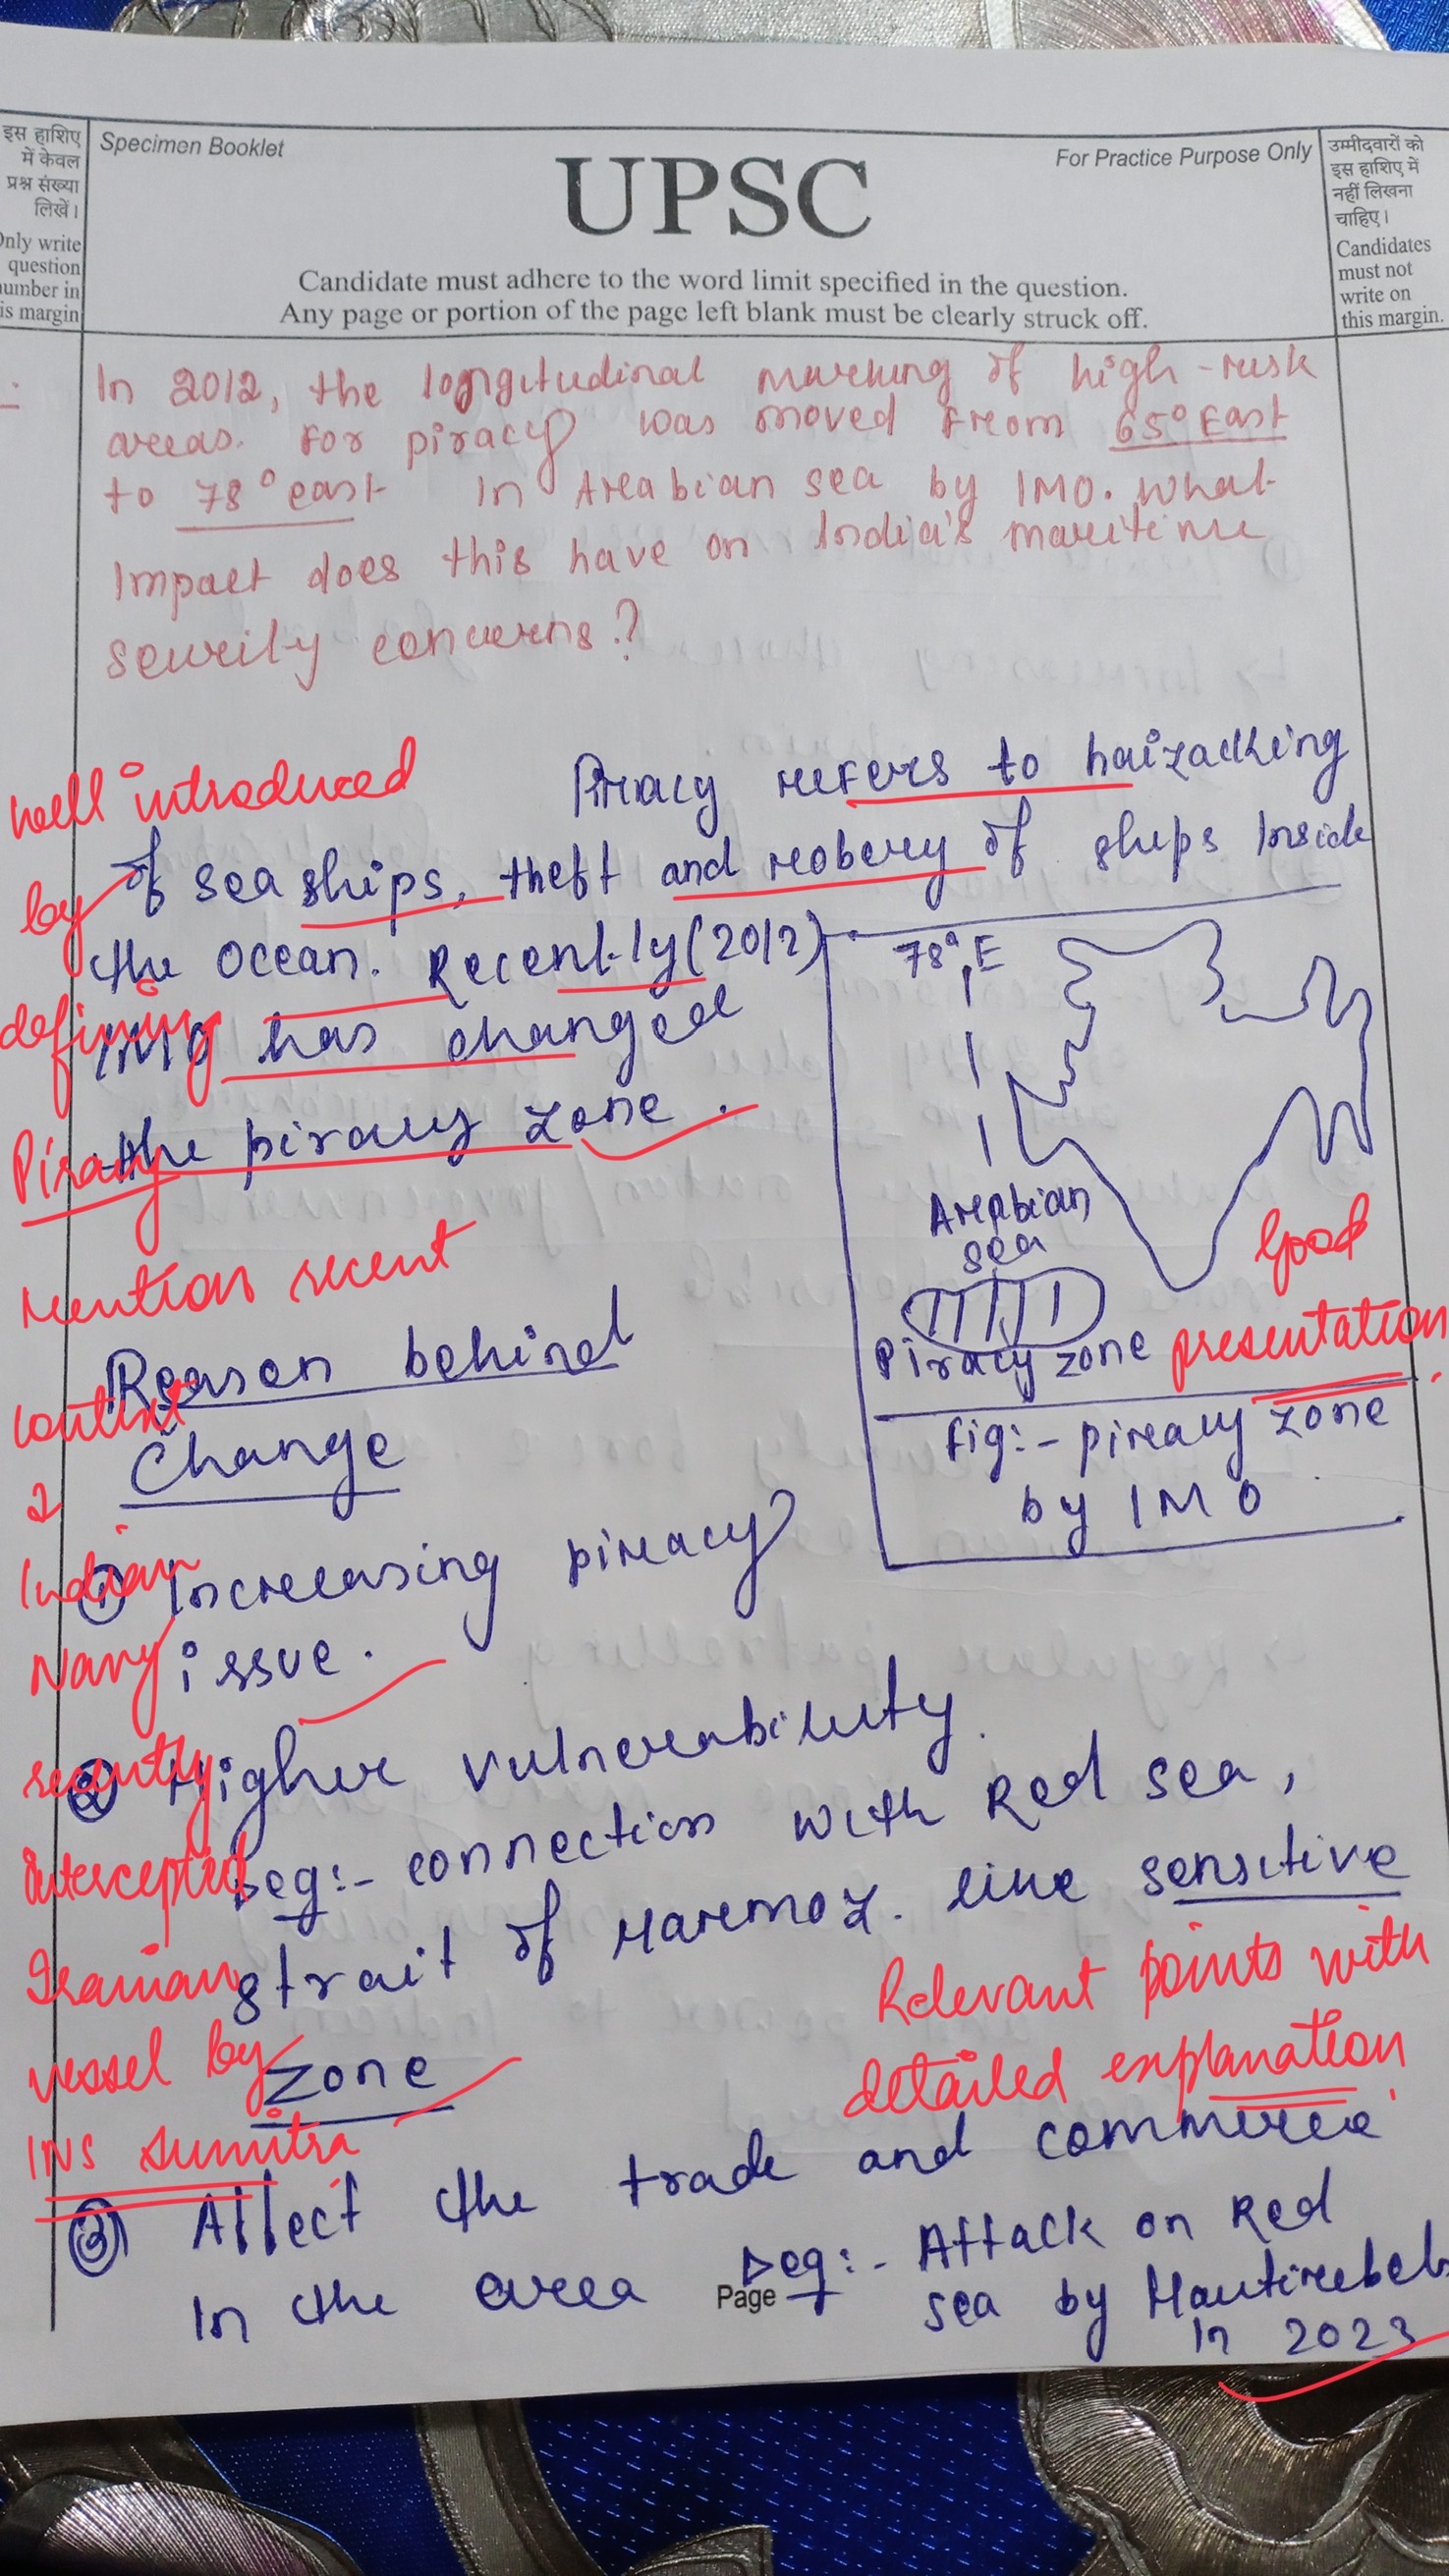 इस हाशिए
में केवल
प्रश्न संख्या
लिखें।
Only write
question
number in
is margin
Specimen Booklet
For Practice Purpose Only
UPSC
Candidate must adhere to the word limit specified in the question.
Any page or portion of the page left blank must be clearly struck off.
उम्मीदवारों को
इस हाशिए में
नहीं लिखना
चाहिए।
Candidates
must not
write on
this margin.
In 2012, the longitudinal marking of high-risk
areas. For piracy was moved from 65° East
to 78° east in Arabian sea by IMO. What
Impact does this have on India's maritime
security concerns?
Piracy refers to haizacking
of sea ships, theft and robery of ships Inside
the ocean. Recently (2012)
IMO has changed
the piracy zone.
78° E
Arabian
sea
Piracy zone
fig:- piracy zone
by IMO
Good
presentation.
well introduced
by
defining
Piracy
Mention recent
context
Indian
Navy
recently
intercepted
Iranian
vessel by
INS Sumitra
Reason behind
Change
① Increasing piracy
issue.
② Higher vulnerability.
eg:- connection with Red sea,
strait of Haremoz. like sensitive
zone
Relevant points with
detailed explanation.
③ Affect the trade and commerce
In the area
eg:- Attack on Red
sea by Hautirebels
In 2023
Page